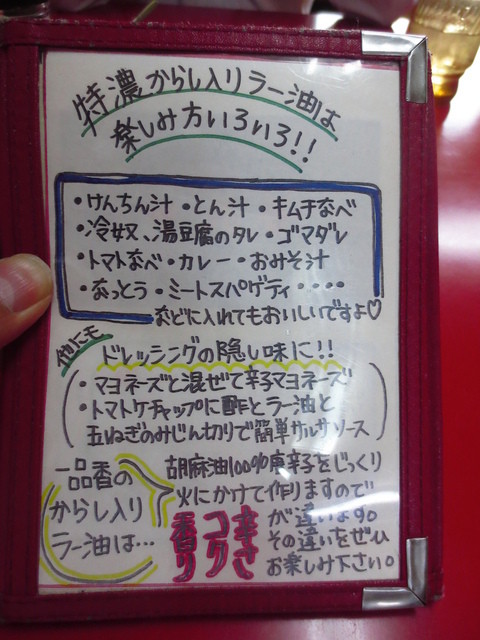 特濃からし入りラー油は
楽しみ方いろいろ!!
・けんちん汁・とん汁・キムチなべ
・冷奴、湯豆腐のタレ・ゴマダレ
・トマトなべ・カレー・おみそ汁
・なっとう・ミートスパゲティ・・・・
などに入れてもおいしいですよ♡
他にも
ドレッシングの隠し味に!!
・マヨネーズと混ぜて辛子マヨネーズ
・トマトケチャップに酢とラー油と
玉ねぎのみじん切りで簡単サルサソース
一品香の
からし入り
ラー油は…
胡麻油100%唐辛子をじっくり
火にかけて作りますので
辛さ
コク
香り
が違います。
その違いをぜひ
お楽しみ下さい。